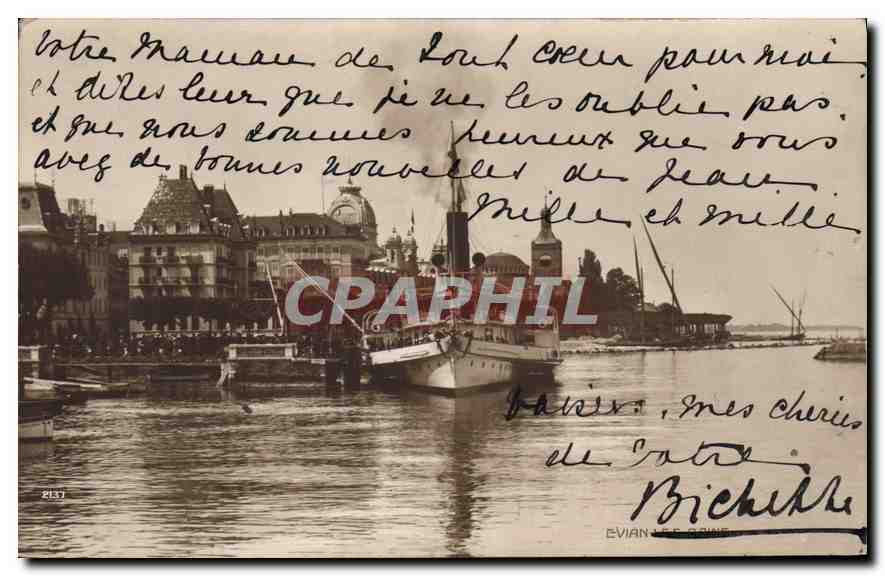 votre Maman de Tout cœur pour moi
et dites leur que je ne les oublie pas
et que nous sommes heureux que vous
ayez de bonnes nouvelles de Jean
Mille et mille
CPAPHIL
baisers, mes chéries
de votre
Bichette
2137
EVIAN LES BAINS